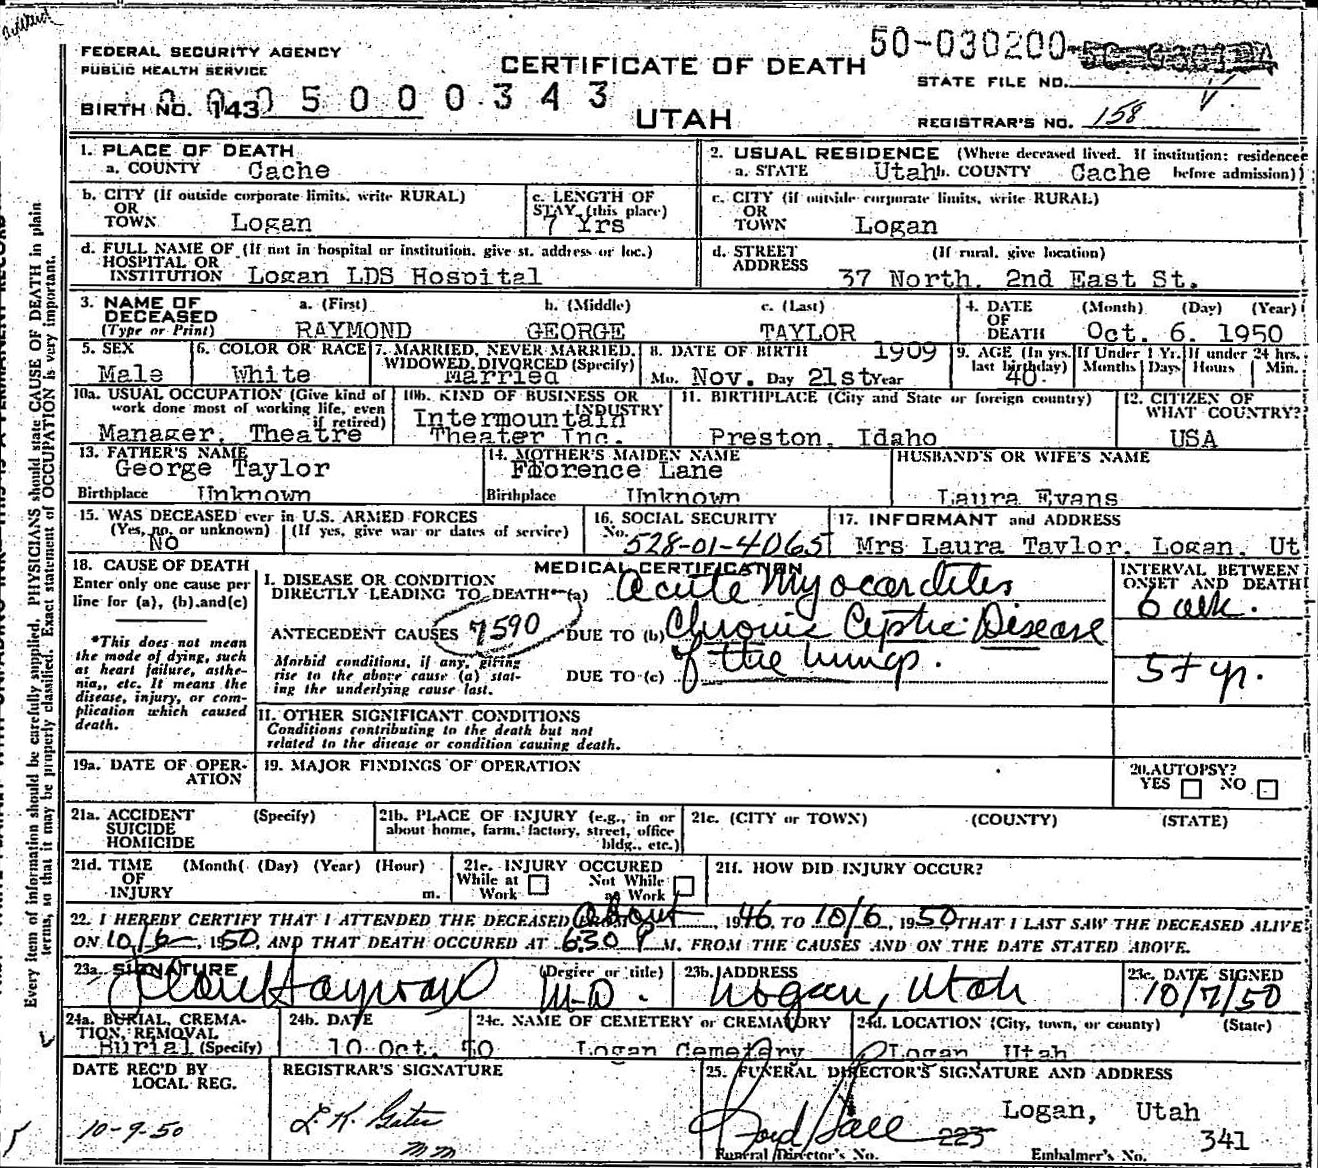 FEDERAL SECURITY AGENCY
PUBLIC HEALTH SERVICE
CERTIFICATE OF DEATH
50-030200
STATE FILE NO.
BIRTH NO. 143
0005000343
UTAH
REGISTRAR'S NO. 158
Every item of information should be carefully supplied. PHYSICIANS should state CAUSE OF DEATH in plain
terms, so that it may be properly classified. Exact statement of OCCUPATION is very important.
1. PLACE OF DEATH
a. COUNTY Cache
2. USUAL RESIDENCE (Where deceased lived. If institution: residence
a. STATE Utah b. COUNTY Cache before admission)
b. CITY (If outside corporate limits, write RURAL)
OR
TOWN Logan
c. LENGTH OF
STAY (this place)
7 Yrs
c. CITY (if outside corporate limits, write RURAL)
OR
TOWN Logan
d. FULL NAME OF (If not in hospital or institution, give st. address or loc.)
HOSPITAL OR
INSTITUTION Logan LDS Hospital
d. STREET (If rural, give location)
ADDRESS
37 North. 2nd East St.
3. NAME OF DECEASED
(Type or Print)
a. (First) b. (Middle) c. (Last)
RAYMOND GEORGE TAYLOR
4. DATE OF DEATH (Month) (Day) (Year)
Oct. 6. 1950
5. SEX
Male
6. COLOR OR RACE
White
7. MARRIED, NEVER MARRIED,
WIDOWED, DIVORCED (Specify)
Married
8. DATE OF BIRTH 1909
Mo. Nov. Day 21st Year
9. AGE (In yrs. last birthday)
40
If Under 1 Yr. Months Days
If under 24 hrs. Hours Min.
10a. USUAL OCCUPATION (Give kind of
work done most of working life, even
if retired)
Manager, Theatre
10b. KIND OF BUSINESS OR
INDUSTRY
Intermountain
Theater Inc.
11. BIRTHPLACE (City and State or foreign country)
Preston, Idaho
12. CITIZEN OF
WHAT COUNTRY?
USA
13. FATHER'S NAME
George Taylor
Birthplace Unknown
14. MOTHER'S MAIDEN NAME
Florence Lane
Birthplace Unknown
HUSBAND'S OR WIFE'S NAME
Laura Evans
15. WAS DECEASED ever in U.S. ARMED FORCES
(Yes, no, or unknown) (If yes, give war or dates of service)
No
16. SOCIAL SECURITY
No. 528-01-4065
17. INFORMANT and ADDRESS
Mrs Laura Taylor, Logan, Ut
18. CAUSE OF DEATH
Enter only one cause per
line for (a), (b), and (c)
*This does not mean
the mode of dying, such
as heart failure, asthe-
nia, etc. It means the
disease, injury, or com-
plication which caused
death.
MEDICAL CERTIFICATION
I. DISEASE OR CONDITION
DIRECTLY LEADING TO DEATH*(a) Acute Myocarditis
ANTECEDENT CAUSES 7590 DUE TO (b) Chronic Disease
Morbid conditions, if any, giving
rise to the above cause (a) stat-
ing the underlying cause last.
DUE TO (c) of the lungs.
INTERVAL BETWEEN
ONSET AND DEATH
6 wk.
5+ yr.
II. OTHER SIGNIFICANT CONDITIONS
Conditions contributing to the death but not
related to the disease or condition causing death.
19a. DATE OF OPER-
ATION
19. MAJOR FINDINGS OF OPERATION
20. AUTOPSY?
YES NO
21a. ACCIDENT (Specify)
SUICIDE
HOMICIDE
21b. PLACE OF INJURY (e.g., in or
about home, farm, factory, street, office
bldg., etc.)
21c. (CITY or TOWN) (COUNTY) (STATE)
21d. TIME (Month) (Day) (Year) (Hour)
OF
INJURY m.
21e. INJURY OCCURED
While at Work Not While at Work
21f. HOW DID INJURY OCCUR?
22. I HEREBY CERTIFY THAT I ATTENDED THE DECEASED FROM about 1946, TO 10/6, 1950, THAT I LAST SAW THE DECEASED ALIVE
ON 10/6, 1950, AND THAT DEATH OCCURED AT 630 P M, FROM THE CAUSES AND ON THE DATE STATED ABOVE.
23a. SIGNATURE (Degree or title)
Hayward M-D.
23b. ADDRESS
Logan, Utah
23c. DATE SIGNED
10/7/50
24a. BURIAL, CREMA-
TION, REMOVAL
Burial (Specify)
24b. DATE
10 Oct. 50
24c. NAME OF CEMETERY or CREMATORY
Logan Cemetery
24d. LOCATION (City, town, or county) (State)
Logan, Utah
DATE REC'D BY
LOCAL REG.
10-9-50
REGISTRAR'S SIGNATURE
mm
25. FUNERAL DIRECTOR'S SIGNATURE AND ADDRESS
Logan, Utah
Hall 225 341
Funeral Director's No. Embalmer's No.